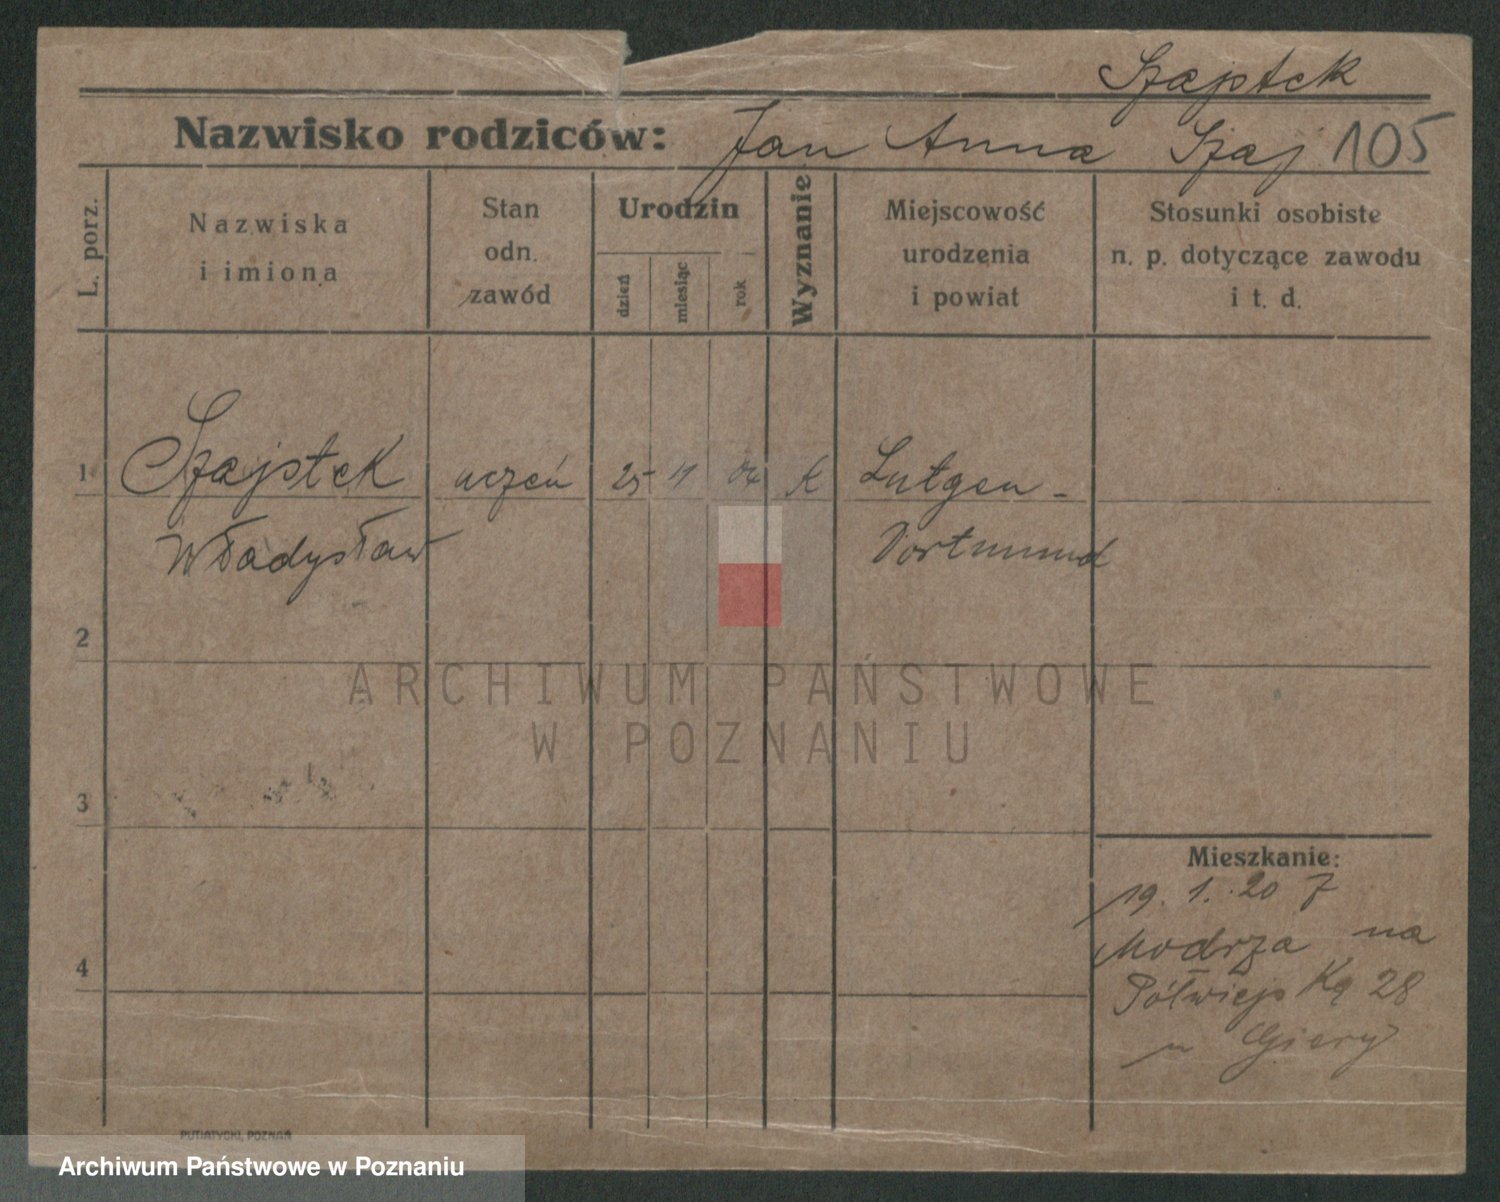 Szajstek
Nazwisko rodziców: Jan Anna Szaj 105
L. porz.
Nazwiska
i imiona
Stan
odn.
zawód
Urodzin
dzień
miesiąc
rok
Wyznanie
Miejscowość
urodzenia
i powiat
Stosunki osobiste
n. p. dotyczące zawodu
i t. d.
1 Szajstek uczeń 25 11 04 K Lutgen-
Władysław Dortmund
2
ARCHIWUM PAŃSTWOWE
W POZNANIU
3
Mieszkanie:
19. 1. 20 z
Modrza na
4
Półwiejs Ką 28
u
PUTIATYCKI, POZNAŃ
Archiwum Państwowe w Poznaniu